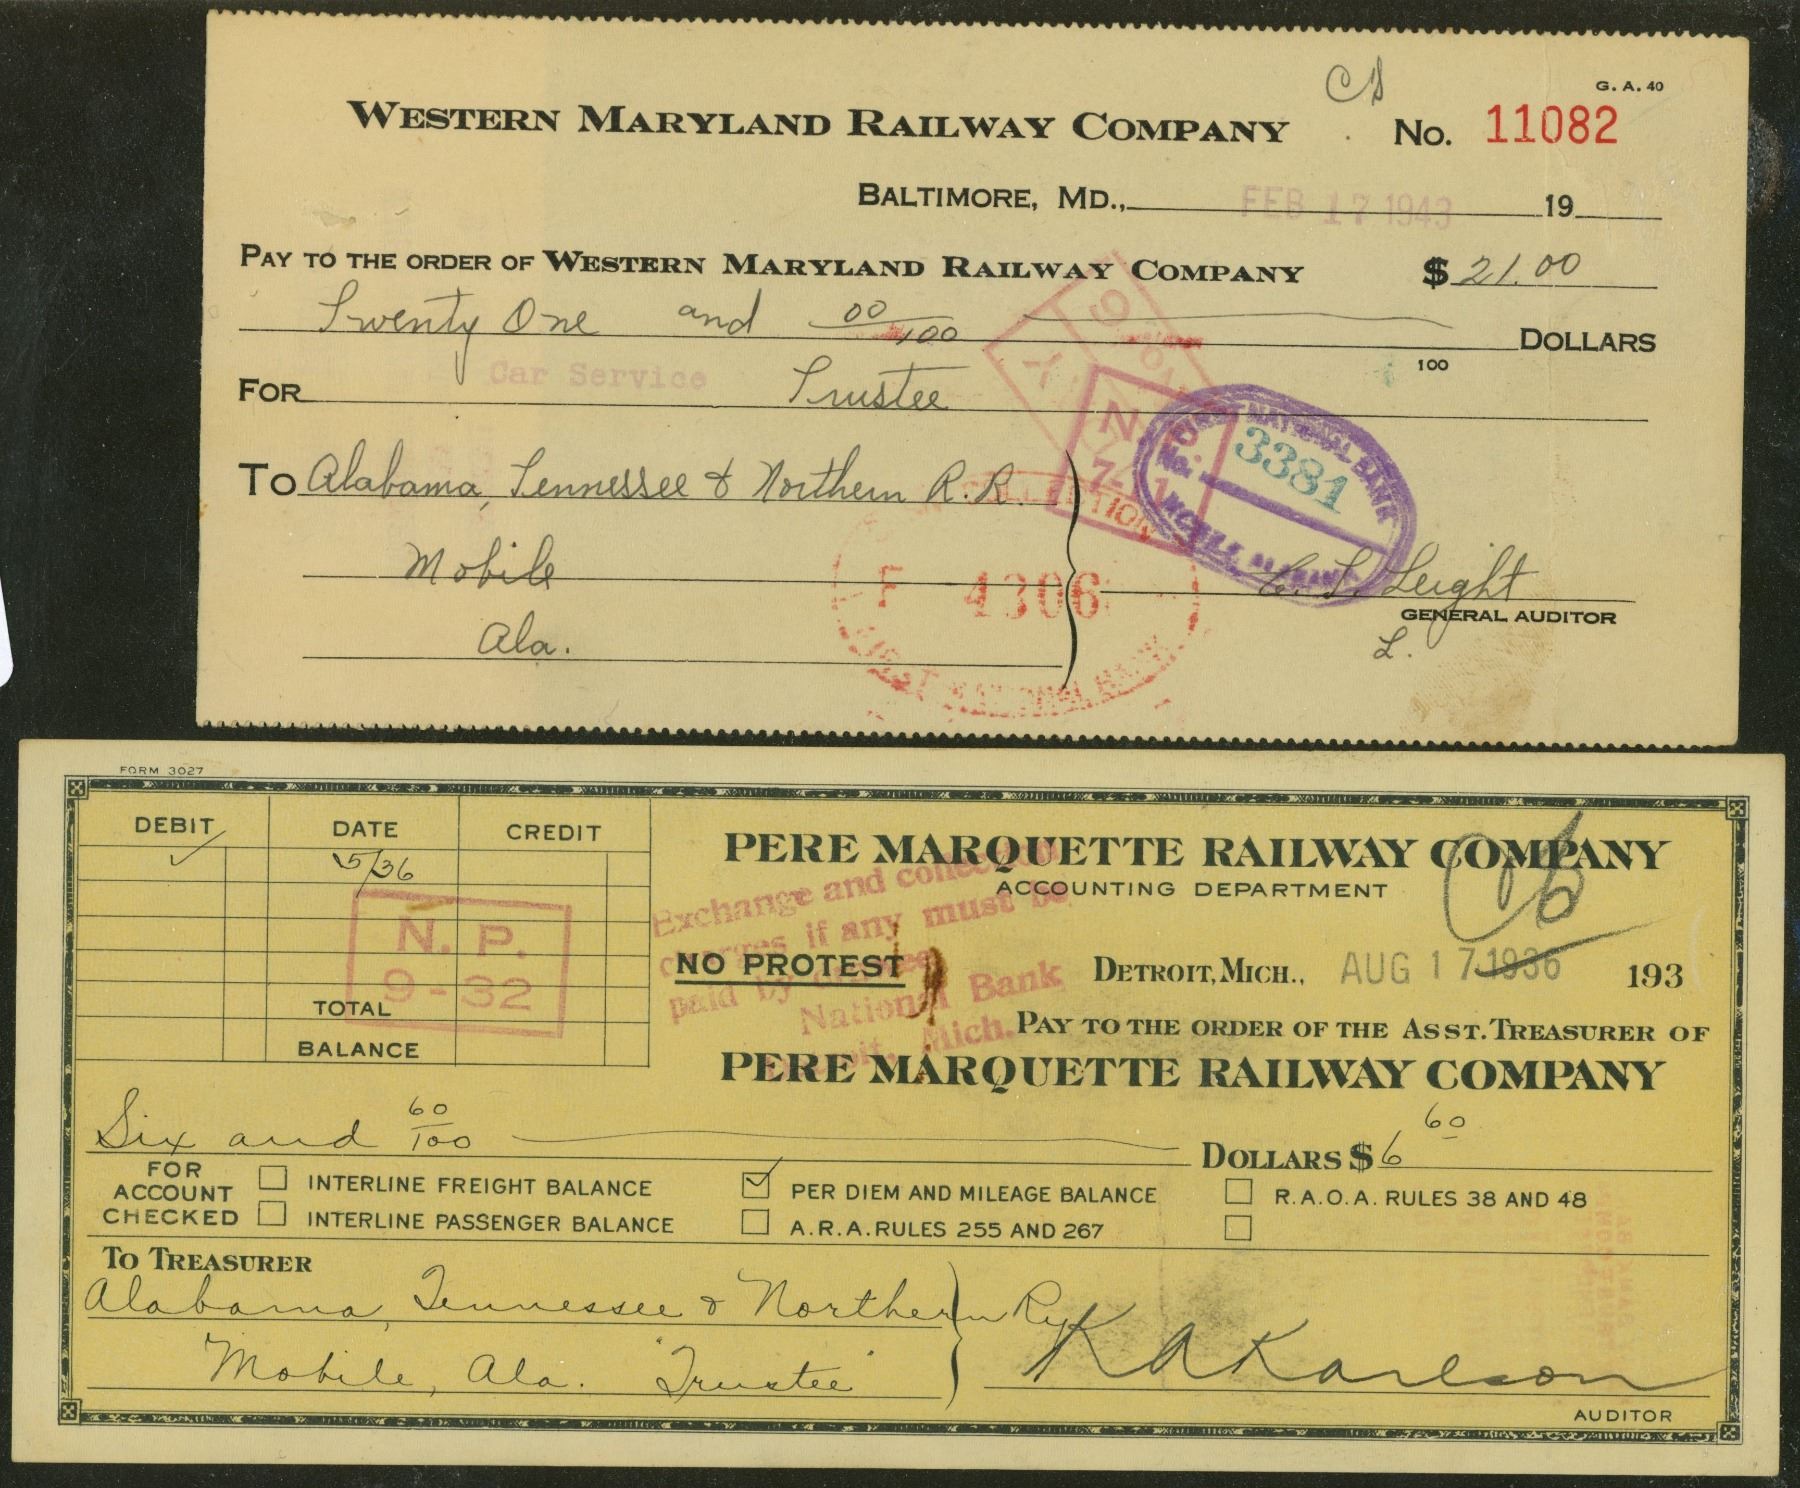 CS
G. A. 40
WESTERN MARYLAND RAILWAY COMPANY No. 11082
BALTIMORE, MD., FEB 17 1943 19
PAY TO THE ORDER OF WESTERN MARYLAND RAILWAY COMPANY $ 21.00
Twenty One and 00/100 DOLLARS
100
FOR Car Service Trustee
N. P.
FIRST NATIONAL BANK
3381
MOBILE, ALABAMA
TO Alabama, Tennessee & Northern R.R.
COLLECTION
Mobile
F 4306
FIRST NATIONAL BANK
C. L. Leight
GENERAL AUDITOR
Ala.
L.
FORM 3027
DEBIT DATE CREDIT
5/36
TOTAL
BALANCE
N. P.
9-32
PERE MARQUETTE RAILWAY COMPANY
ACCOUNTING DEPARTMENT
Exchange and collection
charges if any must be
paid by
National Bank
Mich.
NO PROTEST
DETROIT, MICH., AUG 17 1936 193
PAY TO THE ORDER OF THE ASST. TREASURER OF
PERE MARQUETTE RAILWAY COMPANY
Six and 60/100 DOLLARS $ 6 60
FOR ACCOUNT CHECKED
INTERLINE FREIGHT BALANCE
PER DIEM AND MILEAGE BALANCE
R.A.O.A. RULES 38 AND 48
INTERLINE PASSENGER BALANCE
A.R.A. RULES 255 AND 267
TO TREASURER
Alabama, Tennessee & Northern Ry
Mobile, Ala. "Trustee"
K A Karlson
AUDITOR